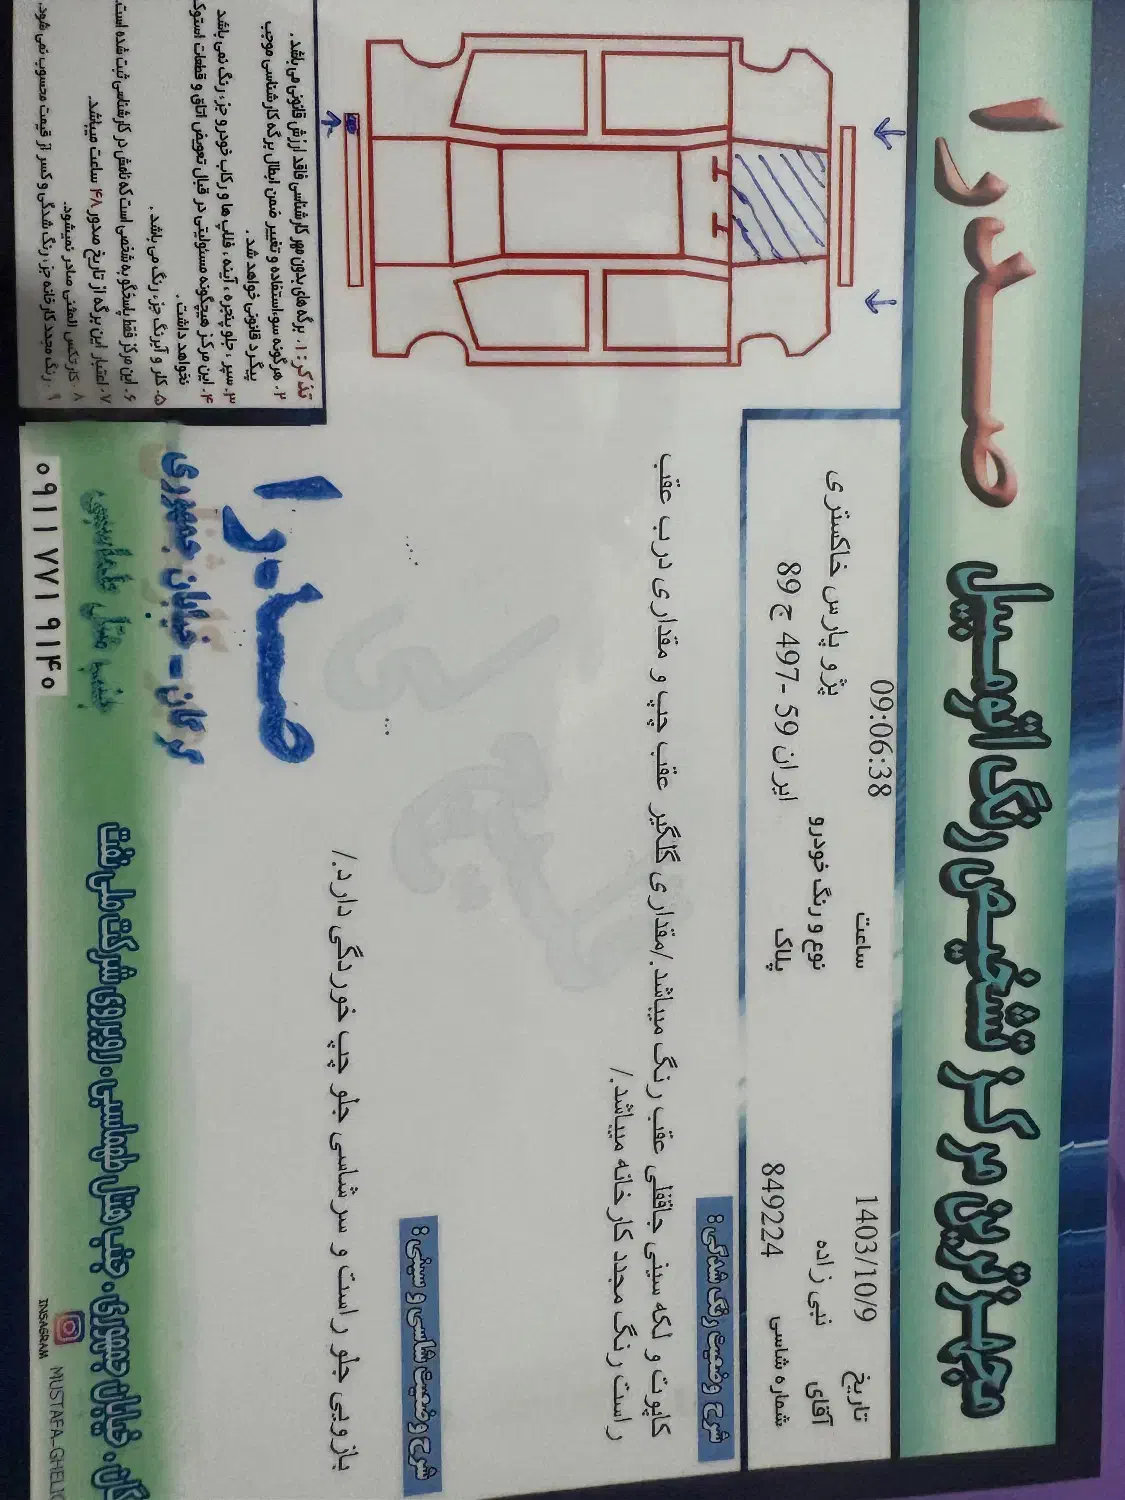 مجهزترین مرکز تشخیص رنگ اتومبیل صدرا
تاریخ 1403/10/9 ساعت 09:06:38
آقای نبی زاده نوع و رنگ خودرو پژو پارس خاکستری
شماره شاسی 849224 پلاک ایران 59 - 497 ج 89
شرح وضعیت رنگ شدگی:
کاپوت و لکه سینی جاقفلی عقب رنگ میباشد./مقداری گلگیر عقب چپ و مقداری درب عقب
راست رنگ مجدد کارخانه میباشد./
شرح وضعیت شاسی و سینی:
بازویی جلو راست و سرشاسی جلو چپ خوردگی دارد./
صدرا
گرگان - خیابان جمهوری
تذکر: ۱. برگه های بدون مهر کارشناسی فاقد ارزش قانونی می باشد.
۲. هرگونه سوءاستفاده و تغییر ضمن ابطال برگه کارشناسی موجب
پیگرد قانونی خواهد شد.
۳. سپر، جلو پنجره، آینه، قلپ ها و رکاب خودرو جزء رنگ نمی باشد
۴. این مرکز هیچگونه مسئولیتی در قبال تعویض اتاق و قطعات استوک
نخواهد داشت.
۵. کلر و آبرنگ جزء رنگ می باشد.
۶. این مرکز فقط پاسخگو به شخصی است که نامش در کارشناسی ثبت شده است.
۷. اعتبار این برگه از تاریخ صدور ۴۸ ساعت میباشد.
۸. کارتکس المثنی صادر نمیشود.
۹. رنگ مجدد کارخانه جزء رنگ شدگی و کسر از قیمت محسوب نمی شود.
خیابان جمهوری، جنب هتل طهماسبی، روبروی شرکت ملی نفت
۰۹۱۱ ۷۷۱ ۹۱۴۰
INSAGRAM